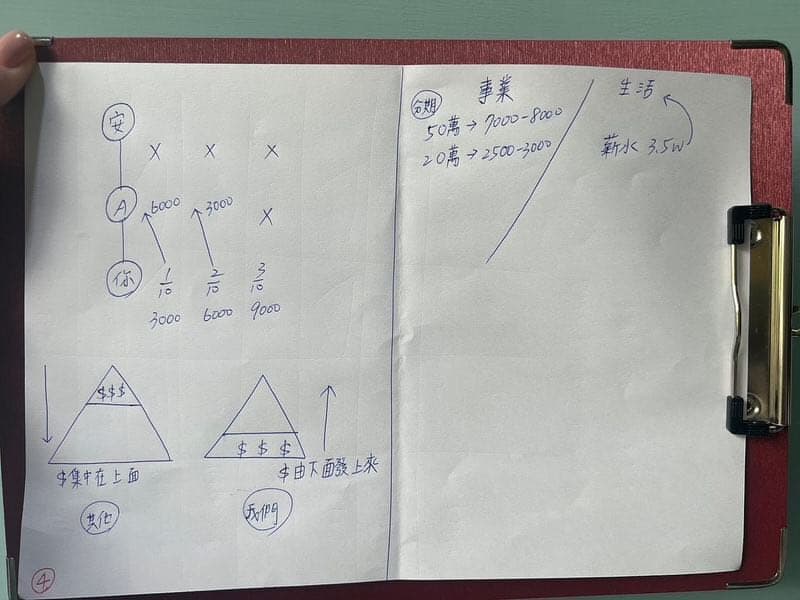 安
X X X
A 6000 3000 X
你 1/10 2/10 3/10
3000 6000 9000
$$$
$集中在上面
其他
$ $ $
$由下面發上來
我們
4
事業
分期
50萬→7000-8000
20萬→2500-3000
生活
薪水 3.5w